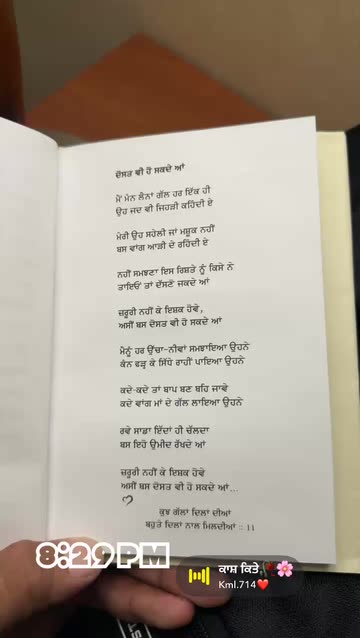 ਦੋਸਤ ਵੀ ਹੋ ਸਕਦੇ ਆਂ
ਮੈਂ ਮੰਨ ਲੈਨਾਂ ਗੱਲ ਹਰ ਇੱਕ ਹੀ
ਉਹ ਜਦ ਵੀ ਜਿਹੜੀ ਕਹਿੰਦੀ ਏ
ਮੇਰੀ ਉਹ ਸਹੇਲੀ ਜਾਂ ਮਸ਼ੂਕ ਨਹੀਂ
ਬਸ ਵਾਂਗ ਆੜੀ ਦੇ ਰਹਿੰਦੀ ਏ
ਨਹੀਂ ਸਮਝਣਾ ਇਸ ਰਿਸ਼ਤੇ ਨੂੰ ਕਿਸੇ ਨੇ
ਤਾਇਓਂ ਤਾਂ ਦੱਸਣੋਂ ਜਕਦੇ ਆਂ
ਜ਼ਰੂਰੀ ਨਹੀਂ ਕੇ ਇਸ਼ਕ ਹੋਵੇ,
ਅਸੀਂ ਬਸ ਦੋਸਤ ਵੀ ਹੋ ਸਕਦੇ ਆਂ
ਮੈਨੂੰ ਹਰ ਉੱਚਾ-ਨੀਵਾਂ ਸਮਝਾਇਆ ਉਹਨੇ
ਕੰਨ ਫੜ੍ਹ ਕੇ ਸਿੱਧੇ ਰਾਹੀਂ ਪਾਇਆ ਉਹਨੇ
ਕਦੇ-ਕਦੇ ਤਾਂ ਬਾਪ ਬਣ ਬਹਿ ਜਾਵੇ
ਕਦੇ ਵਾਂਗ ਮਾਂ ਦੇ ਗੱਲ ਲਾਇਆ ਉਹਨੇ
ਰਵੇ ਸਾਡਾ ਇੱਦਾਂ ਹੀ ਚੱਲਦਾ
ਬਸ ਇਹੋ ਉਮੀਦ ਰੱਖਦੇ ਆਂ
ਜ਼ਰੂਰੀ ਨਹੀਂ ਕੇ ਇਸ਼ਕ ਹੋਵੇ
ਅਸੀਂ ਬਸ ਦੋਸਤ ਵੀ ਹੋ ਸਕਦੇ ਆਂ...
ਕੁਝ ਗੱਲਾਂ ਦਿਲਾਂ ਦੀਆਂ
ਬਹੁਤੇ ਦਿਲਾਂ ਨਾਲ ਮਿਲਦੀਆਂ :: 11
8:29 PM
ਕਾਸ਼ ਕਿਤੇ🥀🌸
Kml.714❤️